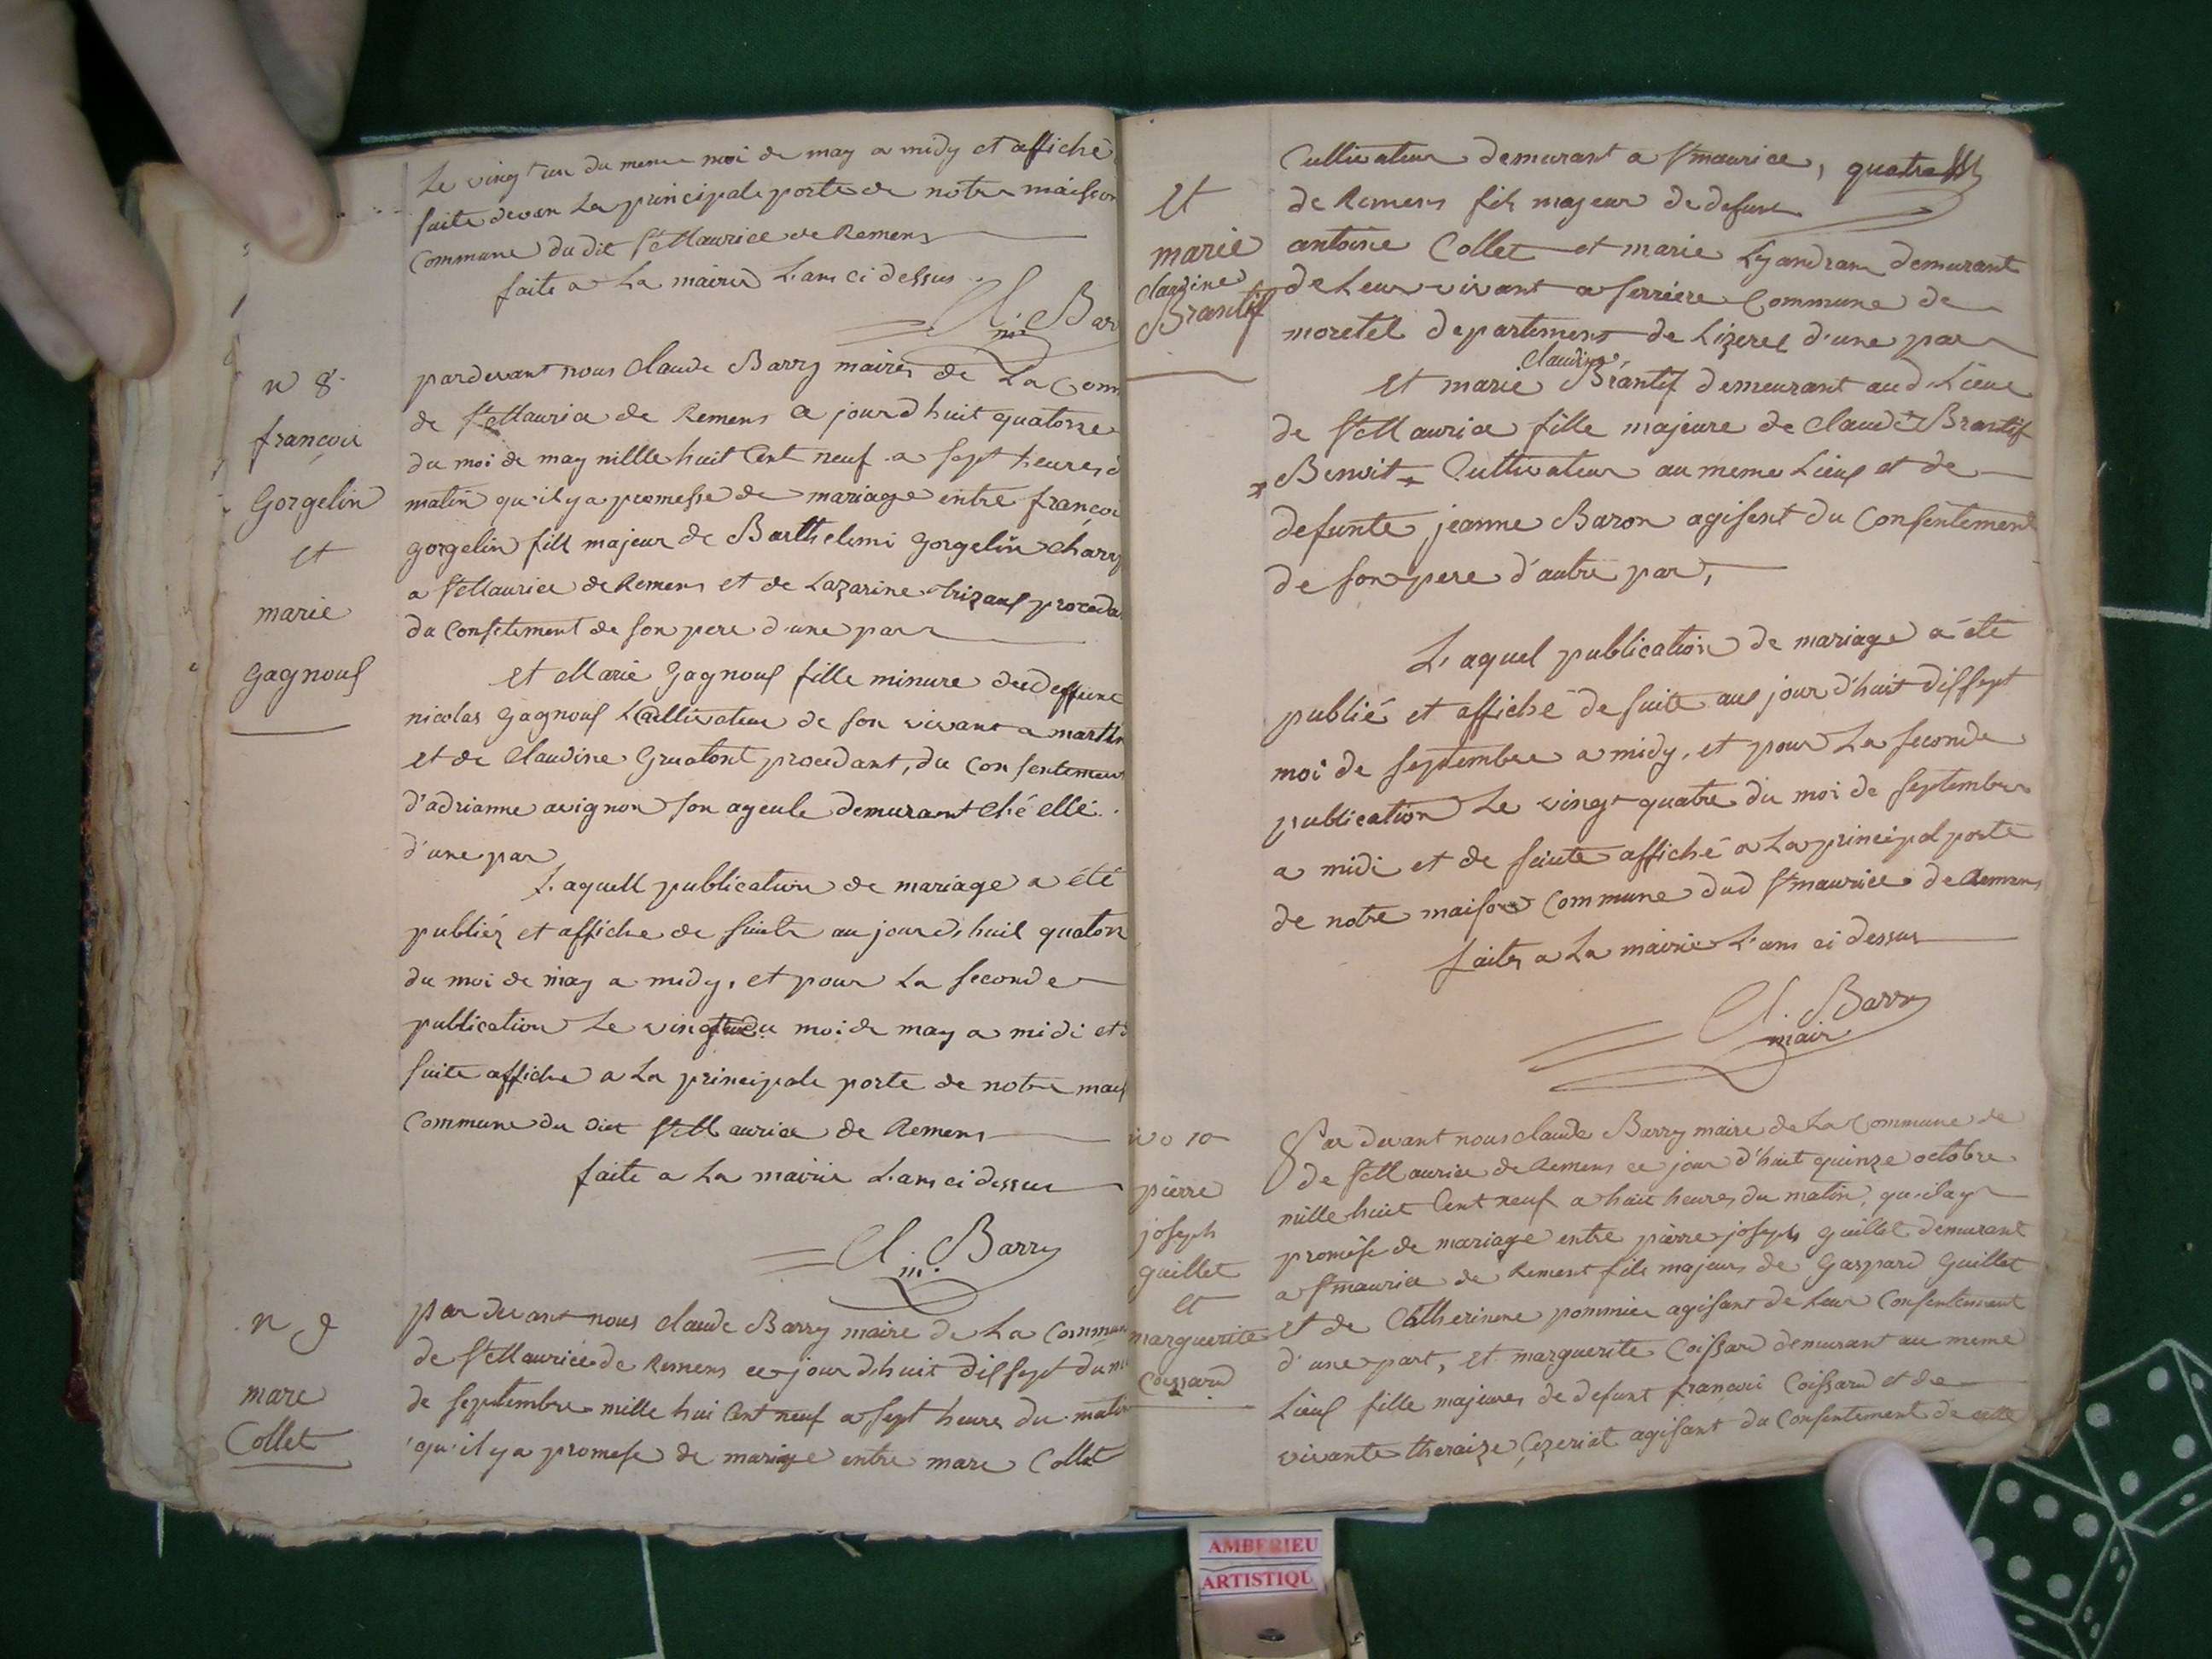 Le vingt un du meme moi de may a midy et affiché
suite devan La principale porte de notre maison
Commune du dit St Maurice de Remens
faite a La mairie L'an ci dessus
Cl. Bar
m.
n 8
françoi
Gorgelin
et
marie
gagnoux
pardevant nous Claude Barry maire de La Com
de St Maurice de Remens Ce jourd huit quatorze
du moi de may millle huit Cent neuf a sept heures d
matin qu'il y a promesse de mariage entre françoi
gorgelin fils majeur de Barthelemi gorgelin charr
a St Maurice de Remens et de Lazarine proceda
du Consetement de son pere d'une par
et Marie gagnoux fille minure de deffunt
nicolas gagnoux Cultivateur de son vivant a martin
et de Claudine Gruatont procedant, du Consentement
d'adrianne avignon son ayeule demurant ché elle
d'une par
Laquell publication de mariage a été
publiéz et affiche de suite au jourd'huit quatorz
du moi de may a midy, et pour La seconde
publication Le vingt un du moi de may a midi et d
suite affiche a La principale porte de notre mais
Commune du dict St Maurice de Remens
faite a La mairie L'an ci dessus
Cl. Barry
m.
n 9
marc
Collet
par devant nous Claude Barry maire de La Commun
de St Maurice de Remens ce jour dhuit dissept du m
de septembre mille hui Cent neuf a sept heures du matin
qu'il y a promese de mariage entre marc Collet
et
marie
claudine
Brantif
Cultivateur demurant a St maurice, quatre
de Remens fils majeur de defunt
antoine Collet et marie Lyandram demurant
de Leur vivant a serriere Commune de
moretel departement de Lizeres d'une par
claudine
et marie Brantif demeurant aud. Lieux
de St Maurice fille majeure de Claude Brantif
Benoit Cultivateur au meme Lieux et de
defunte jeanne Baron agisent du Consentement
de son pere d'autre par,
L'aquel publication de mariage a été
publié et affiché de suite aux jour d'huit dissept
moi de septembre a midy, et pour La seconde
publication Le vingt quatre du moi de septembre
a midi et de suite affiché a La principal porte
de notre maison Commune dud St maurice de Remens
faites a La mairie L'an ci dessus
Cl. Barry
mair
no 10
pierre
joseph
guillet
et
marguerite
Coissard
Par devant nous claude Barry maire de La Commune de
de St Maurice de Remens ce jour d'huit quinze octobre
mille huit Cent neuf a huit heures du matin, qu'il ay
promése de mariage entre pierre joseph guillet demurant
a St maurice de Remens fils majeur de Gaspard Guillet
et de Catherinne pommier agisant de Leur Consentement
d'une part, et marguerite Coissard demurant au meme
Lieux fille majeures de defunt françoi Coissard et de
vivante theraize Cezeriat agisant du Consentement de cette
AMBERIEU
ARTISTIQU